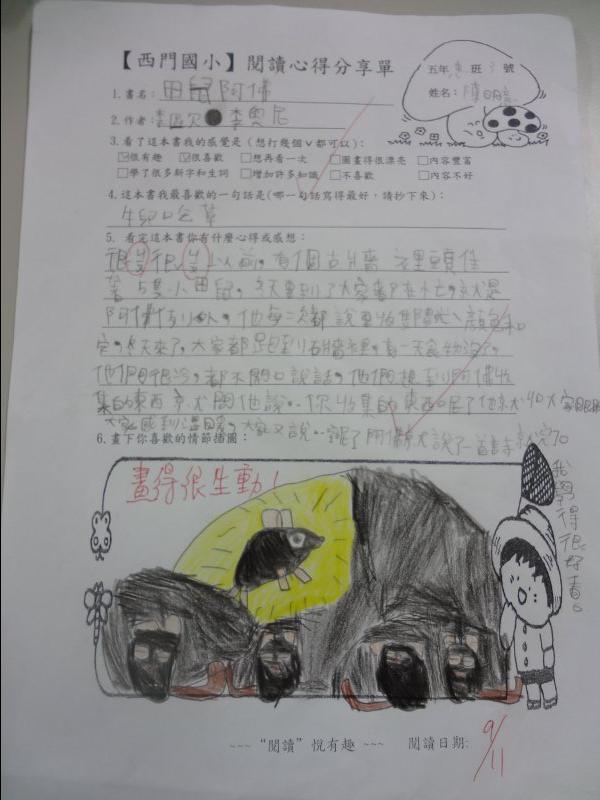 【西門國小】閱讀心得分享單
五年 班 號
姓名：陳
1.書名：田鼠阿佛
2.作者：李奧尼
3.看了這本書我的感覺是(想打幾個ˇ都可以)：
☑很有趣 ☑很喜歡 □想再看一次 □圖畫得很漂亮 □內容豐富
□學了很多新字和生詞 □增加許多知識 □不喜歡 □內容不好
4.這本書我最喜歡的一句話是(哪一句話寫得最好，請抄下來)：
牛兒吃草
5. 看完這本書你有什麼心得或感想：
很 很 以前，有個古牆 裡頭住
著 5隻小田鼠，冬天要到了大家都在忙，就是
阿佛 他每次都說要收集 顏色和
字，冬天來了，大家都 到石牆裡，有一天食物沒了，
他們很冷，都不開口說話，他們想到阿佛收
集的東西 問他說：你收集的東西呢 他 叫大家
大家感到溫暖，大家又說： 呢 阿佛 說了一首詩 完了
我覺得很好看。
6.畫下你喜歡的情節插圖：
畫得很生動！
~~~ “閱讀”悅有趣 ~~~ 閱讀日期:
9/11